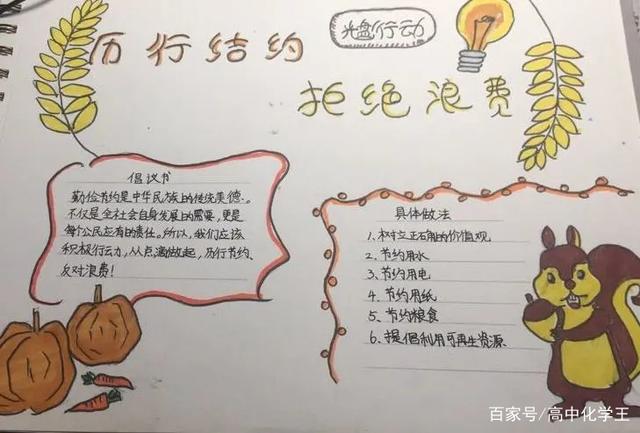 光盘行动
历行结约
拒绝浪费
倡议书
勤俭节约是中华民族上的传统美德。
不仅是全社会自身发展的需要,更是
每个公民应有的责任。所以,我们应该
积极行动,从点滴做起,历行节约、
反对浪费!
具体做法
1、树立正确的价值观
2、节约用水
3、节约用电
4、节约用纸
5、节约粮食
6、提倡利用可再生资源
百家号/高中化学王